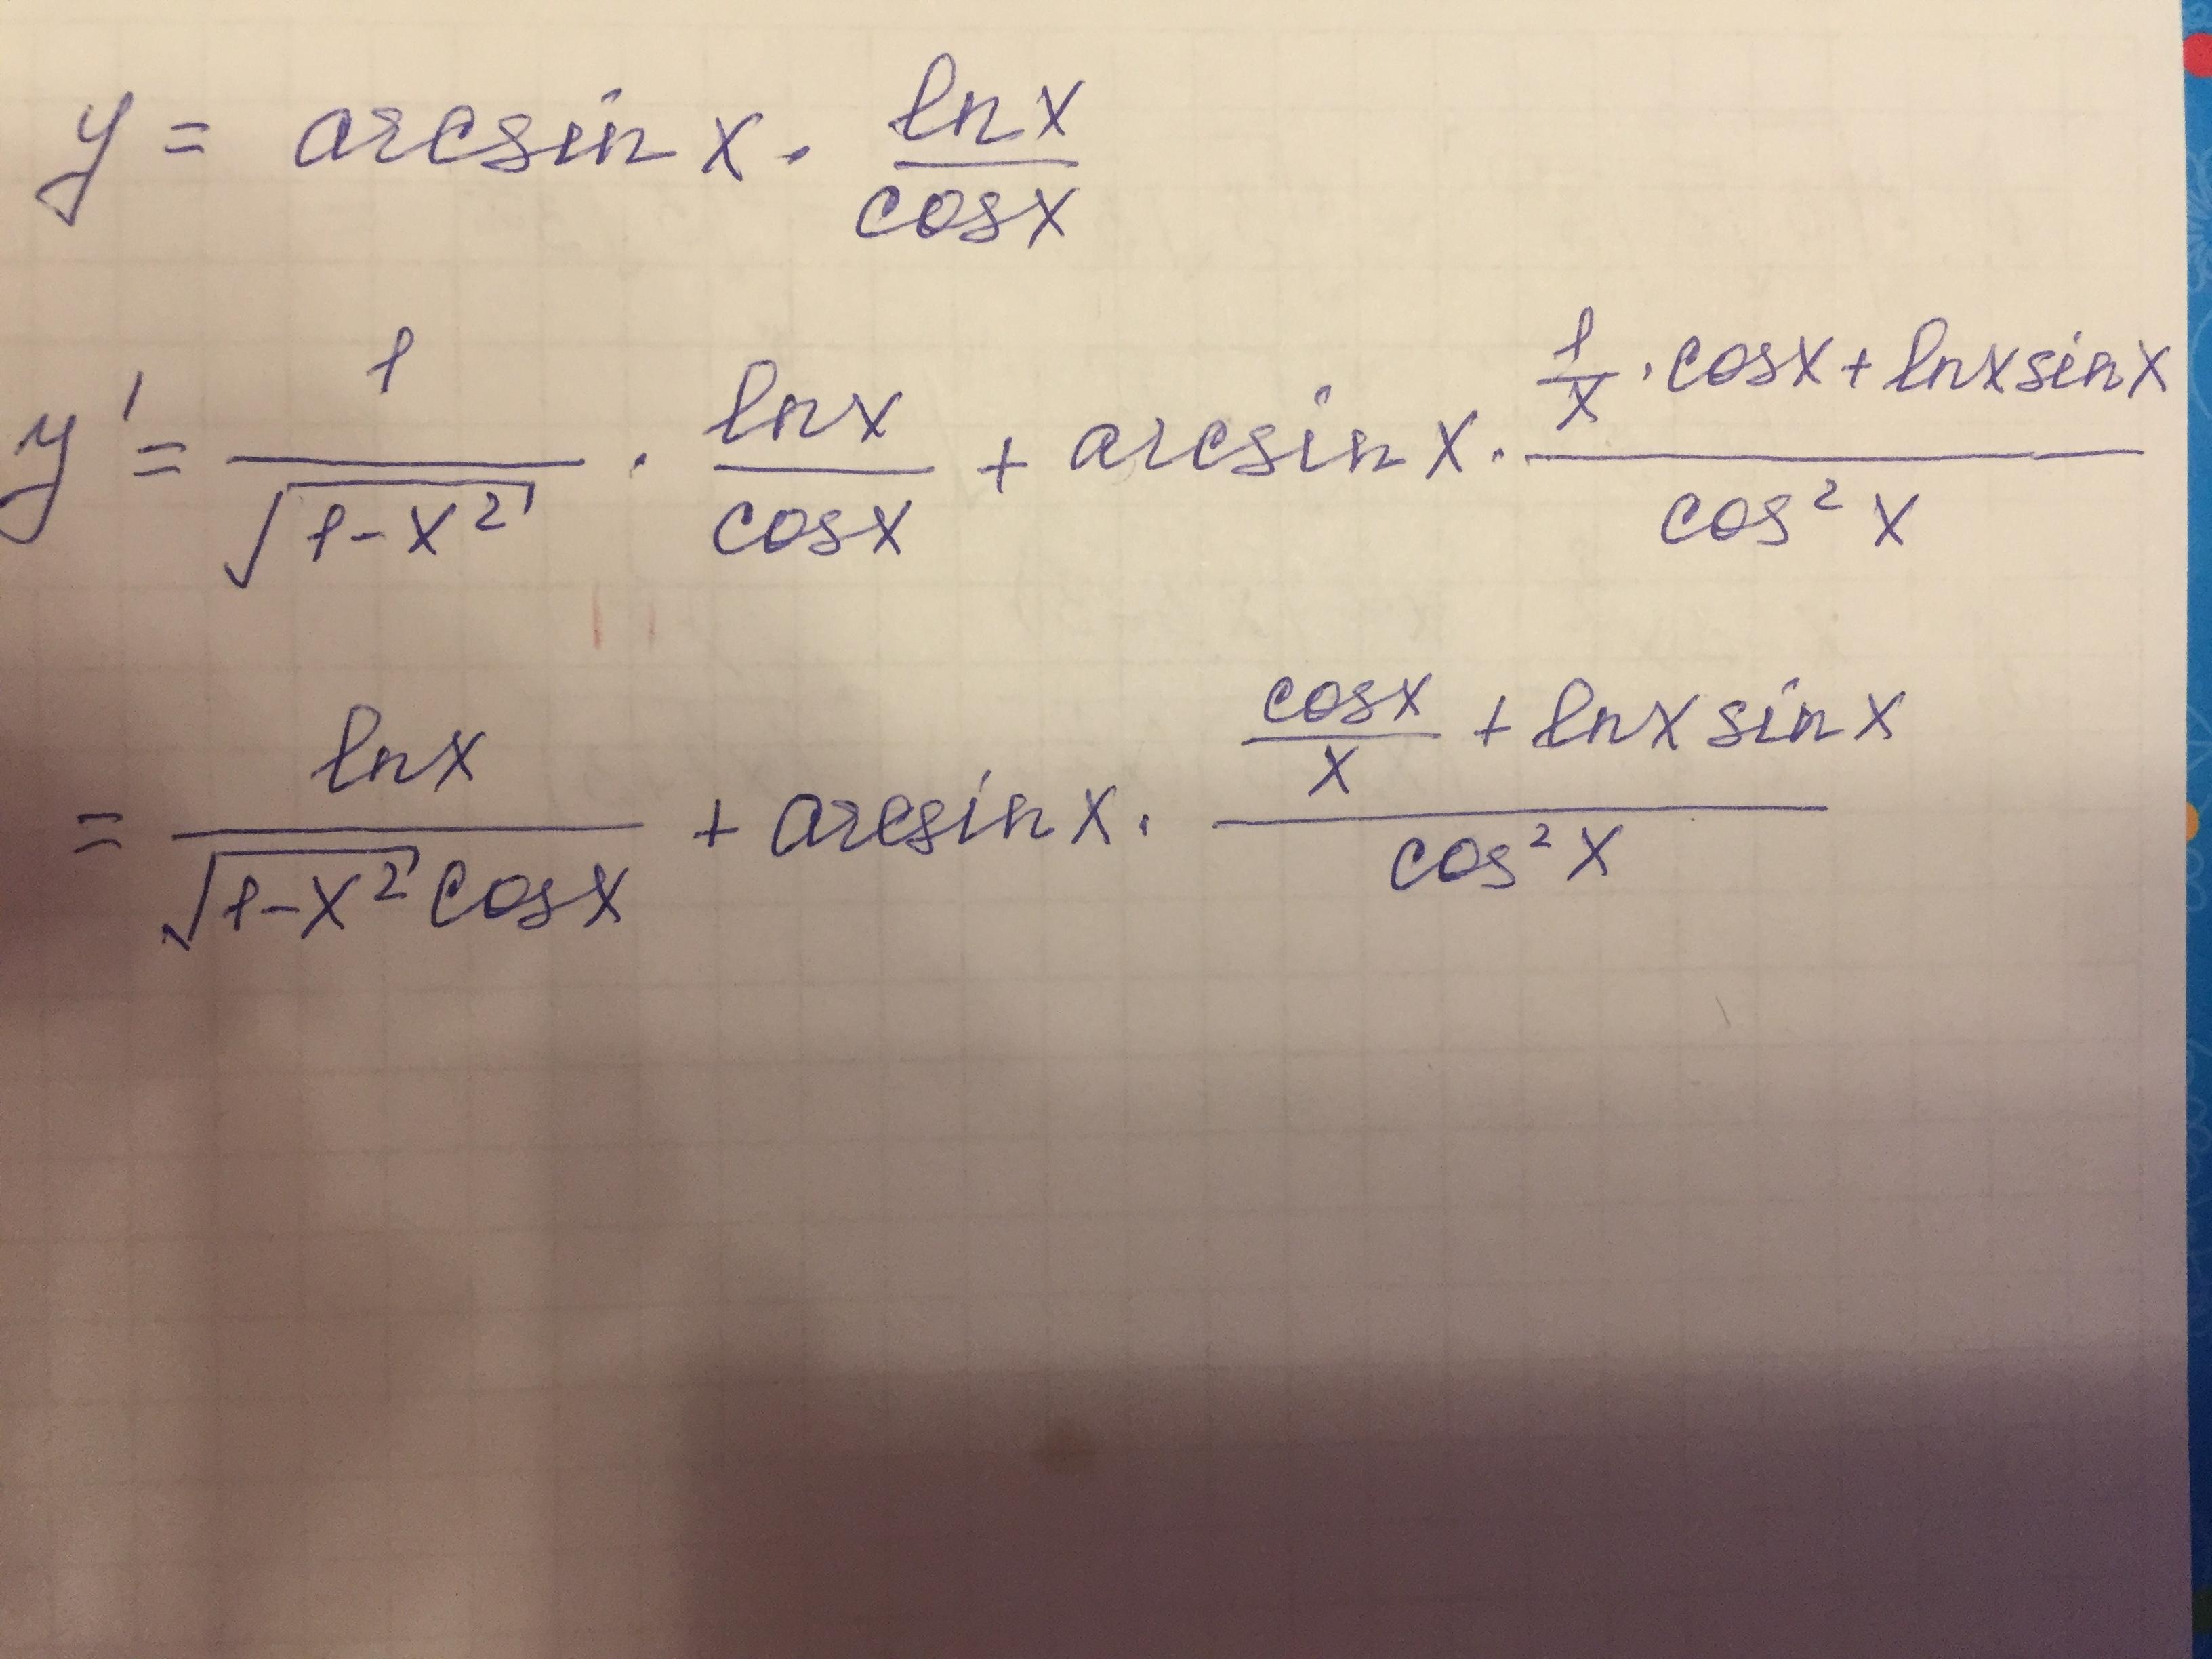 y = arcsin x · ln x / cos x
y' = 1 / √(1-x²) · ln x / cos x + arcsin x · (1/x · cos x + ln x sin x) / cos² x
= ln x / (√(1-x²) cos x) + arcsin x · (cos x / x + ln x sin x) / cos² x